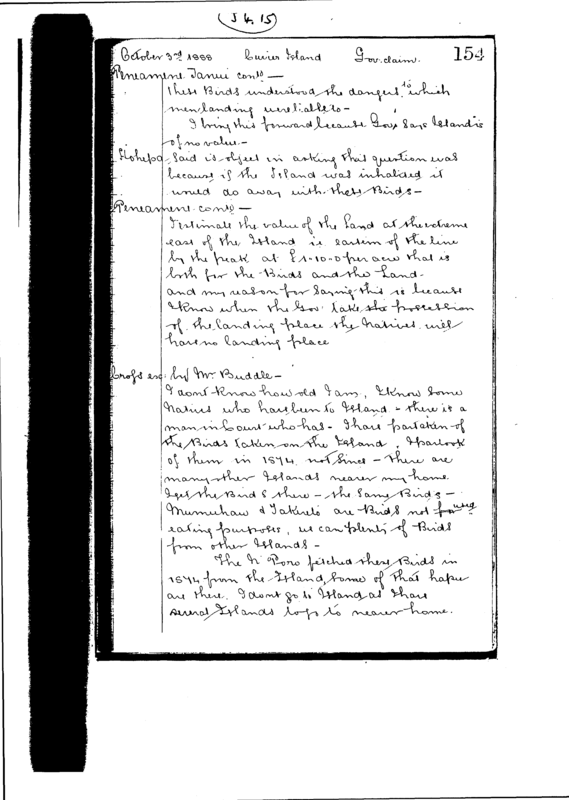 October 3rd 1888 Cuvier Island Gov. claim. 154
Peneamene Tanui contd —
These Birds understood the dangers to which
men landing were liable to —
I bring this forward because Gov. says Island is
of no value. —
Hohepa said is object in asking that question was
because if the Island was inhabited it
would do away with these Birds —
Peneamene contd —
I estimate the value of the Land at the extreme
east of the Island ie eastern of the line
by the peak at £1-10-0 per acre that is
both for the Birds and the Land.
and my reason for saying this is because
I know when the Gov. take the possession
of the landing place the Natives will
have no landing place
Cross ex. by Mr. Buddle —
I dont know how old I am, I know some
Natives who have been to Island — there is a
man in Court who has. I have partaken of
the Birds taken on the Island, I partook
of them in 1874 not since — there are
many other Islands nearer my home
I get the Birds there — the same Birds —
are Birds not for used
eating purposes, we can plenty of Birds
from other Islands —
The N. Poro fetched these Birds in
1874 from the Island, some of that hapu
are there. I dont go to Island as I have
several Islands to go to nearer home.